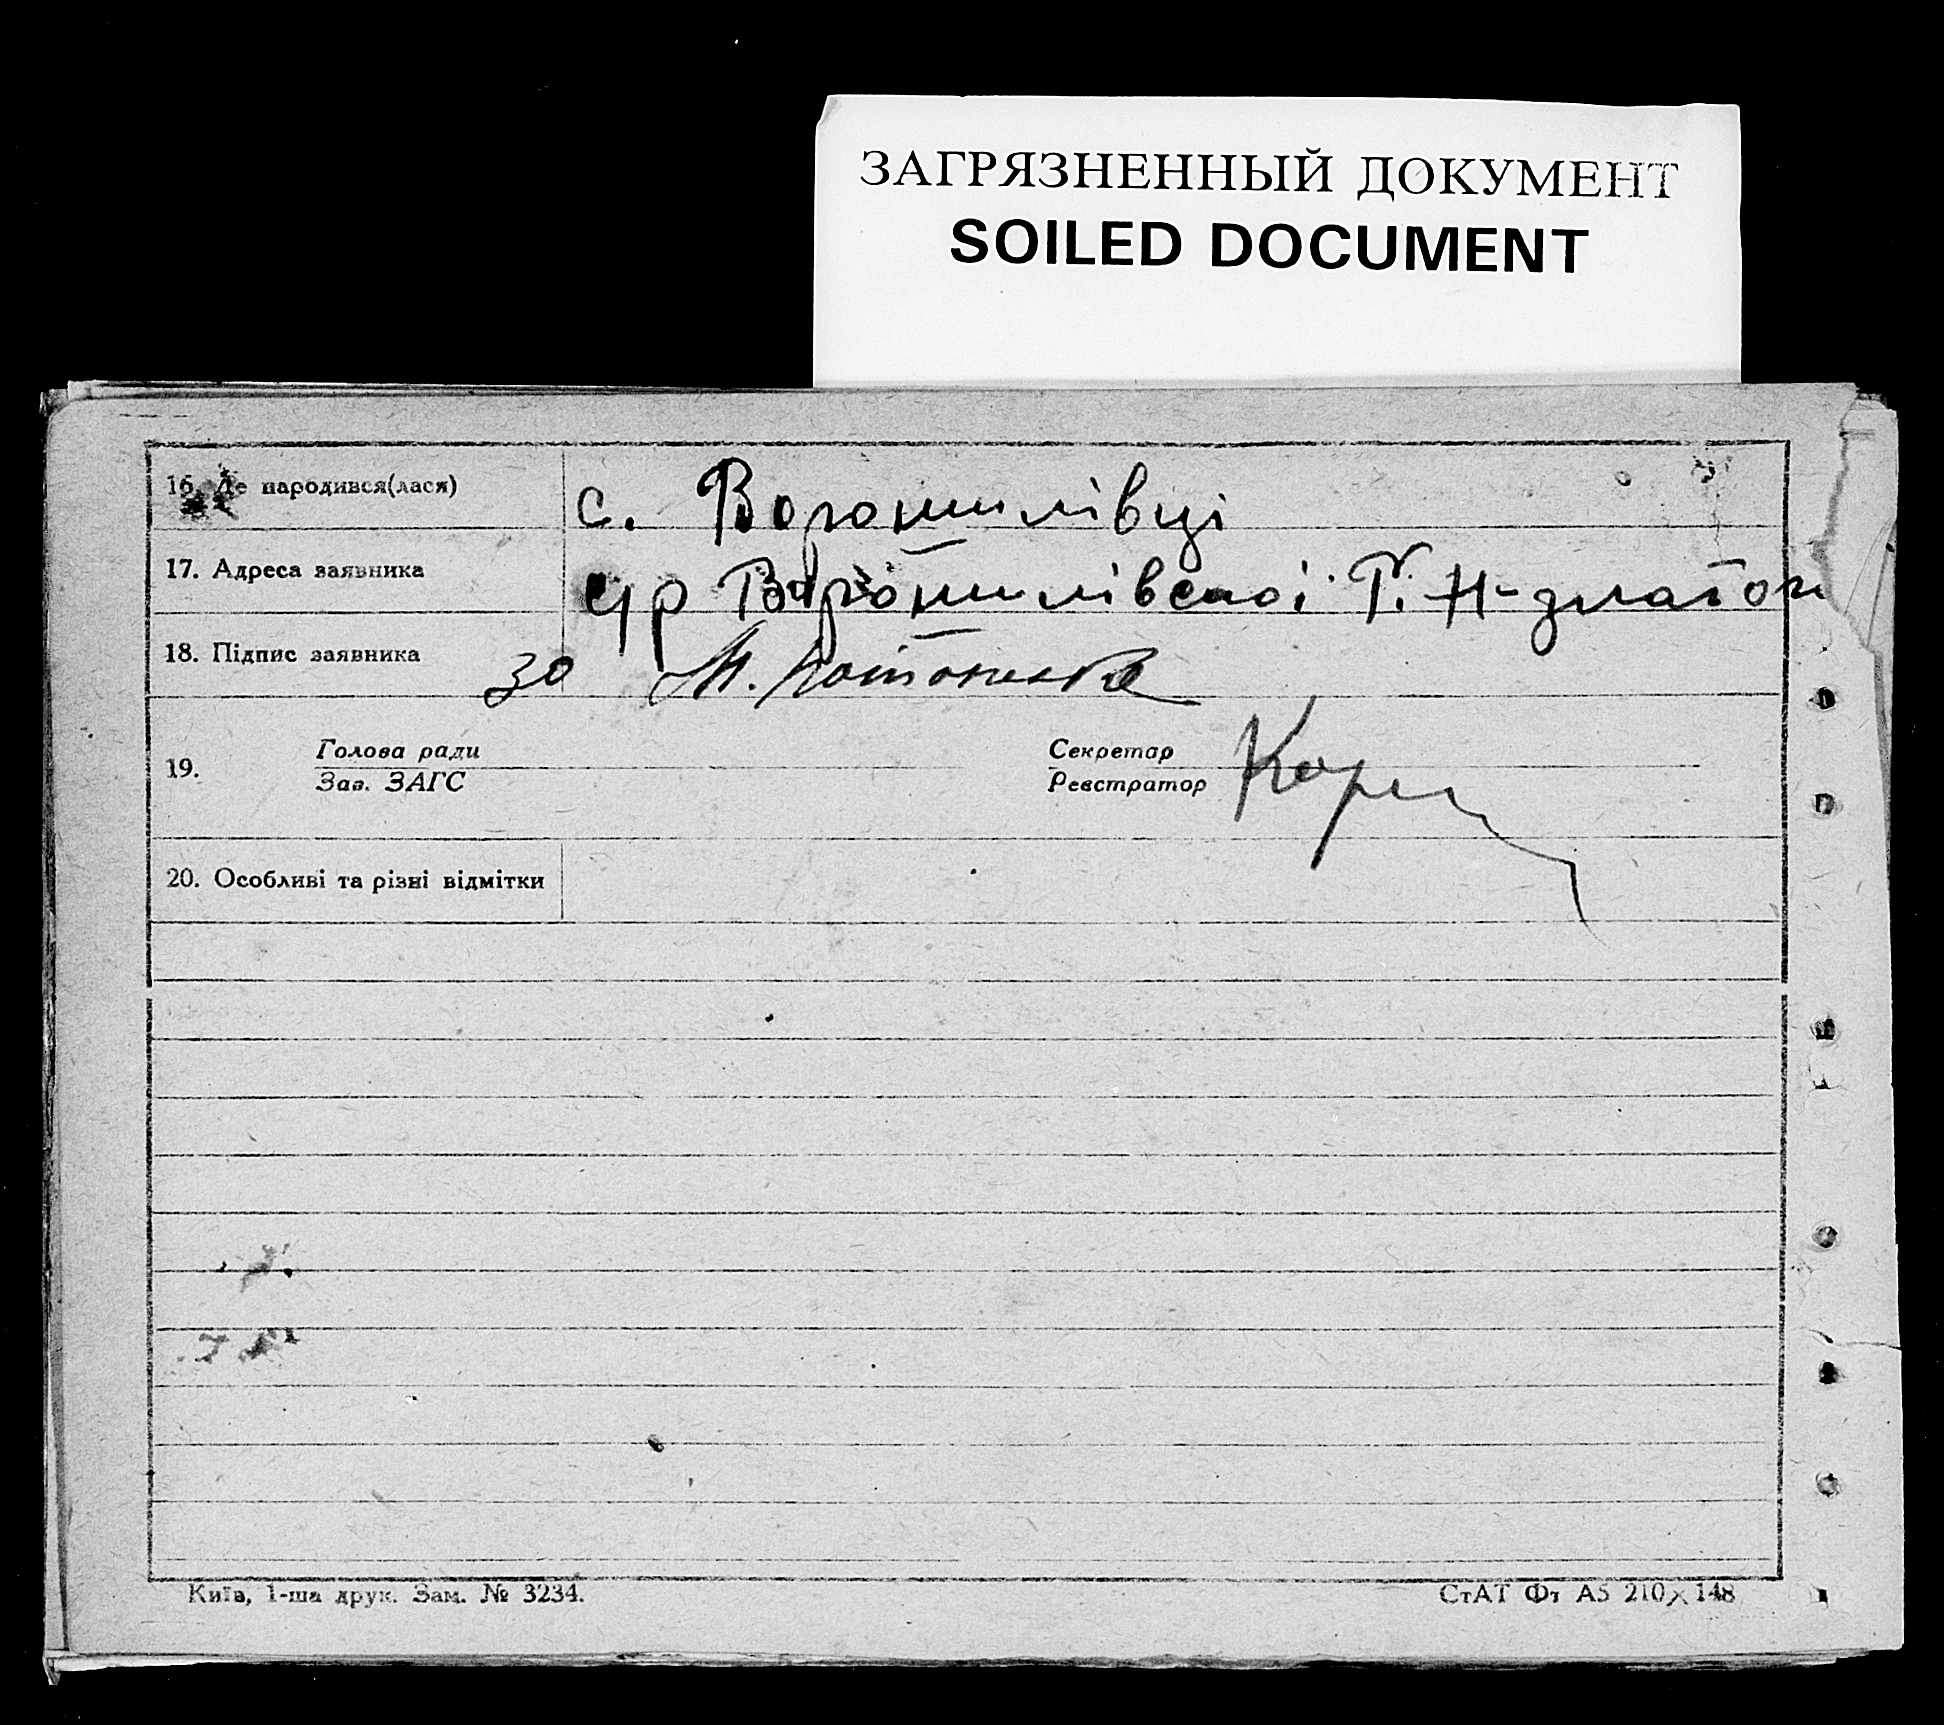 ЗАГРЯЗНЕННЫЙ ДОКУМЕНТ
SOILED DOCUMENT
16. Де народився(лася) с. Ворошилівці
17. Адреса заявника с/р Ворошилівської
18. Підпис заявника
Голова ради Секретар
19.
Зав. ЗАГС Реєстратор
20. Особливі та різні відмітки
Київ, 1-ша друк. Зам. № 3234. СтАТ Ф7 А5 210×148